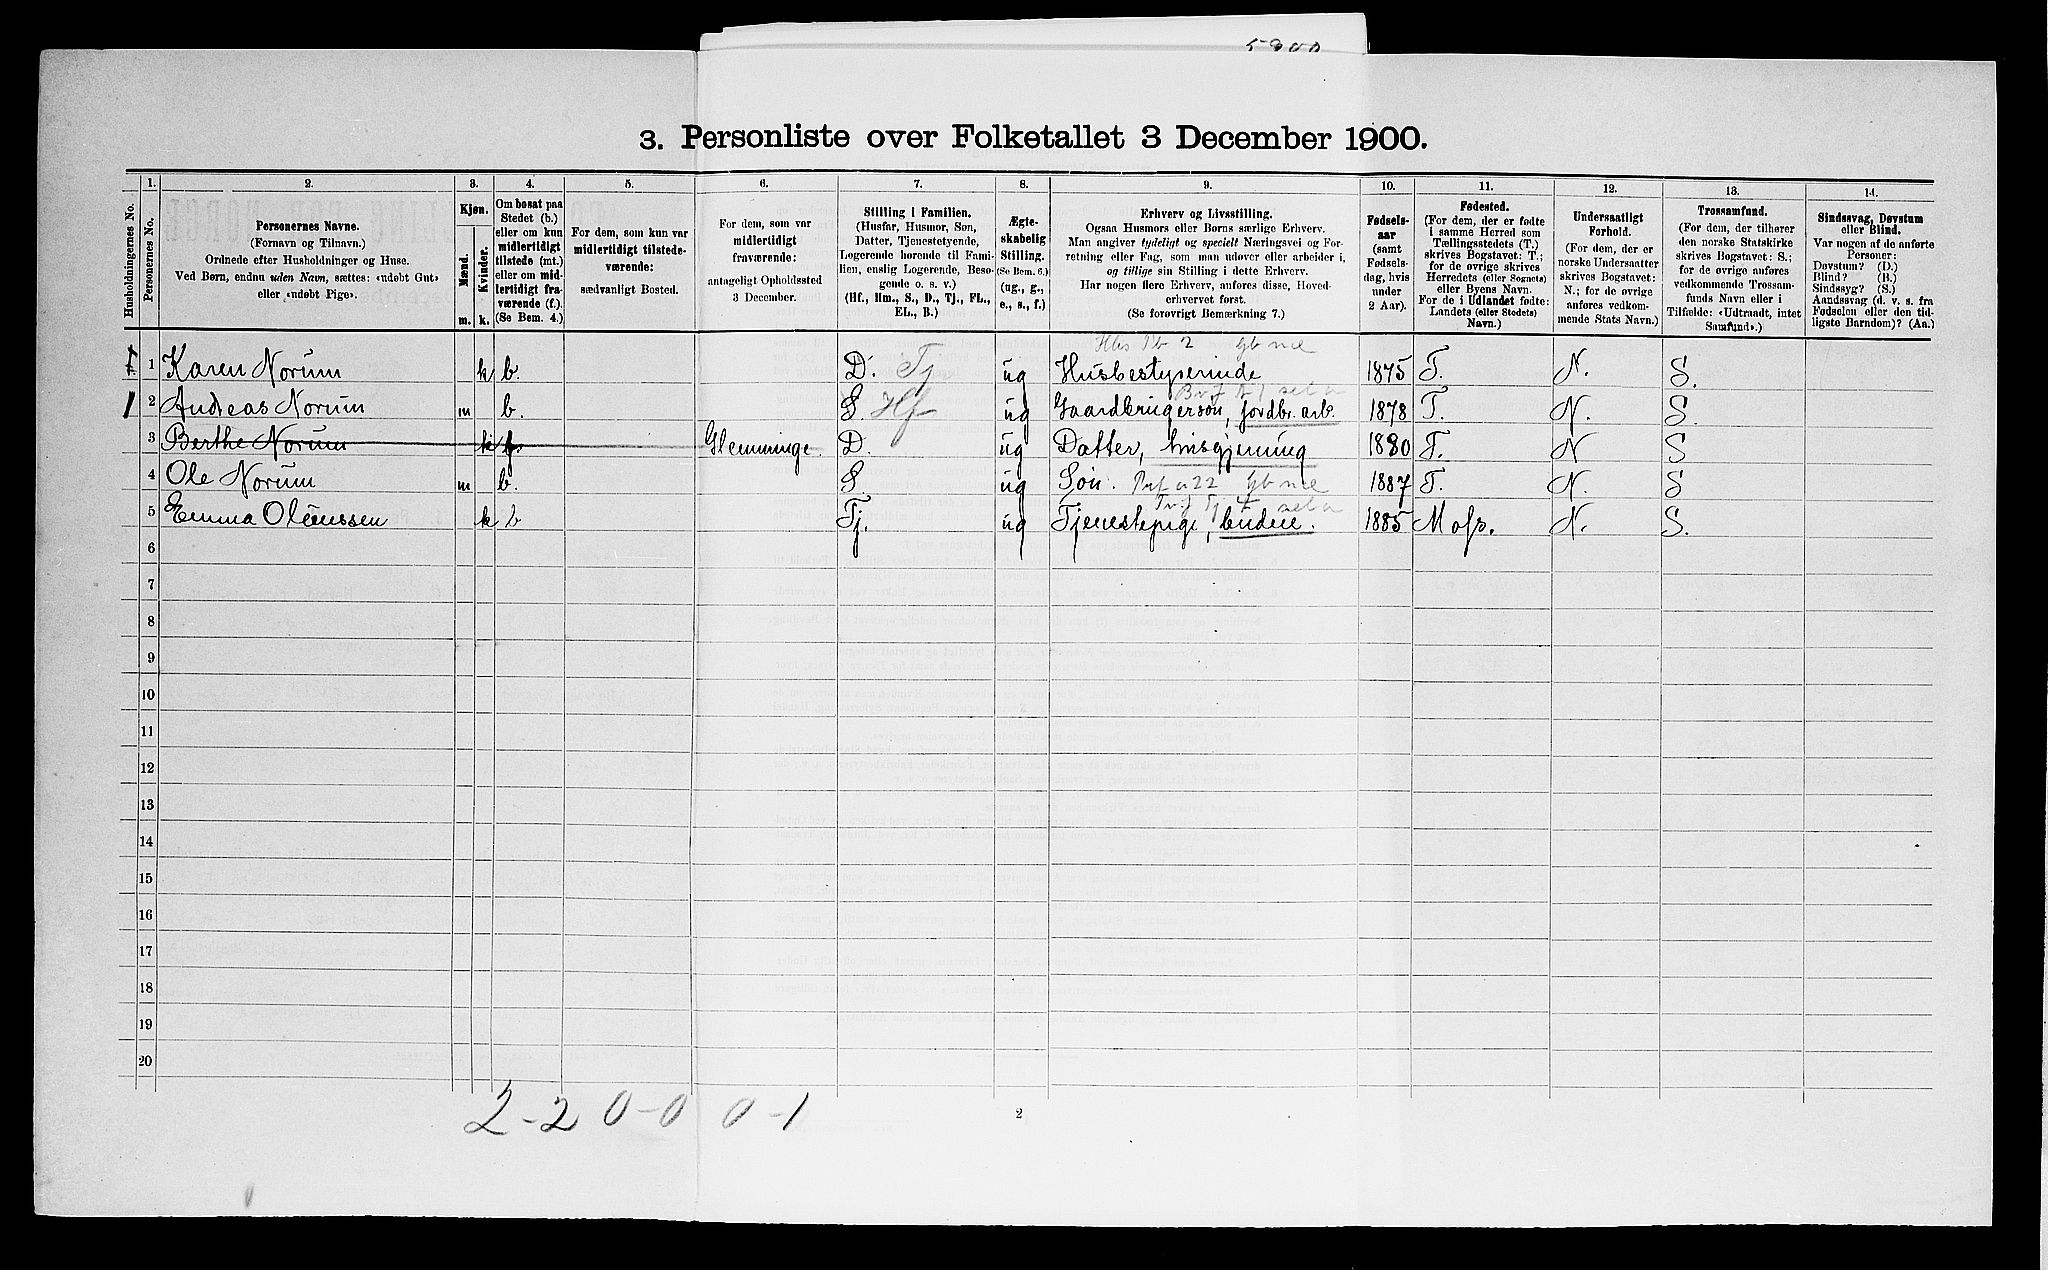 5900
3. Personliste over Folketallet 3 December 1900.
Husholdningernes No.
1.
Personernes No.
2.
Personernes Navne.
(Fornavn og Tilnavn.)
Ordnede efter Husholdninger og Huse.
Ved Børn, endnu uden Navn, sættes: «udøbt Gut»
eller «udøbt Pige».
3.
Kjøn.
Mænd.
Kvinder.
m.
k.
4.
Om bosat paa
Stedet (b.)
eller om kun
midlertidigt
tilstede (mt.)
eller om mid-
lertidigt fra-
værende (f.).
(Se Bem. 4.)
5.
For dem, som kun var
midlertidigt tilstede-
værende:
sædvanligt Bosted.
6.
For dem, som var
midlertidigt
fraværende:
antageligt Opholdssted
3 December.
7.
Stilling i Familien.
(Husfar, Husmor, Søn,
Datter, Tjenestetyende,
Logerende hørende til Fami-
lien, enslig Logerende, Besø-
gende o. s. v.)
(Hf., Hm., S., D., Tj., FL.,
EL., B.)
8.
Ægte-
skabelig
Stilling.
(Se Bem. 6.)
(ug., g.,
e., s., f.)
9.
Erhverv og Livsstilling.
Ogsaa Husmors eller Børns særlige Erhverv.
Man angiver tydeligt og specielt Næringsvei og For-
retning eller Fag, som man udøver eller arbeider i,
og tillige sin Stilling i dette Erhverv.
Har nogen flere Erhverv, anføres disse, Hoved-
erhvervet først.
(Se forøvrigt Bemærkning 7.)
10.
Fødsels-
aar
(samt
Fødsels-
dag, hvis
under
2 Aar).
11.
Fødested.
(For dem, der er fødte
i samme Herred som
Tællingsstedets (T.)
skrives Bogstavet: T.;
for de øvrige skrives
Herredets (eller Sognets)
eller Byens Navn.
For de i Udlandet fødte:
Landets (eller Stedets)
Navn.)
12.
Undersaatligt
Forhold.
(For dem, der er
norske Undersaatter
skrives Bogstavet:
N.; for de øvrige
anføres vedkom-
mende Stats Navn.)
13.
Trossamfund.
(For dem, der tilhører
den norske Statskirke
skrives Bogstavet: S.;
for de øvrige anføres
vedkommende Trossam-
funds Navn eller i
Tilfælde: «Udtraadt, intet
Samfund».)
14.
Sindssvag, Døvstum
eller Blind.
Var nogen af de anførte
Personer:
Døvstum? (D.)
Blind? (B.)
Sindssyg? (S.)
Aandssvag (d. v. s. fra
Fødselen eller den tid-
ligste Barndom)? (Aa.)
1 Karen Norum k b. D. Tj ug Husbestyrerinde 1875 T. N. S.
1 2 Andreas Norum m b. S. Hf ug Gaardbrugersøn, jordbr. arb. 1878 T. N. S
3 Berthe Norum k f Glemminge. D. ug Datter, husgjerning 1880 T. N S
4 Ole Norum m b. S ug Søn. 1887 T. N. S
5 Emma Olaussen k b Tj. ug Tjenestepige, budeie. 1885 Moss. N. S.
6
7
8
9
10
11
12
13
14
15
16
17
18
19
20
2-2 0-0 0-1
2